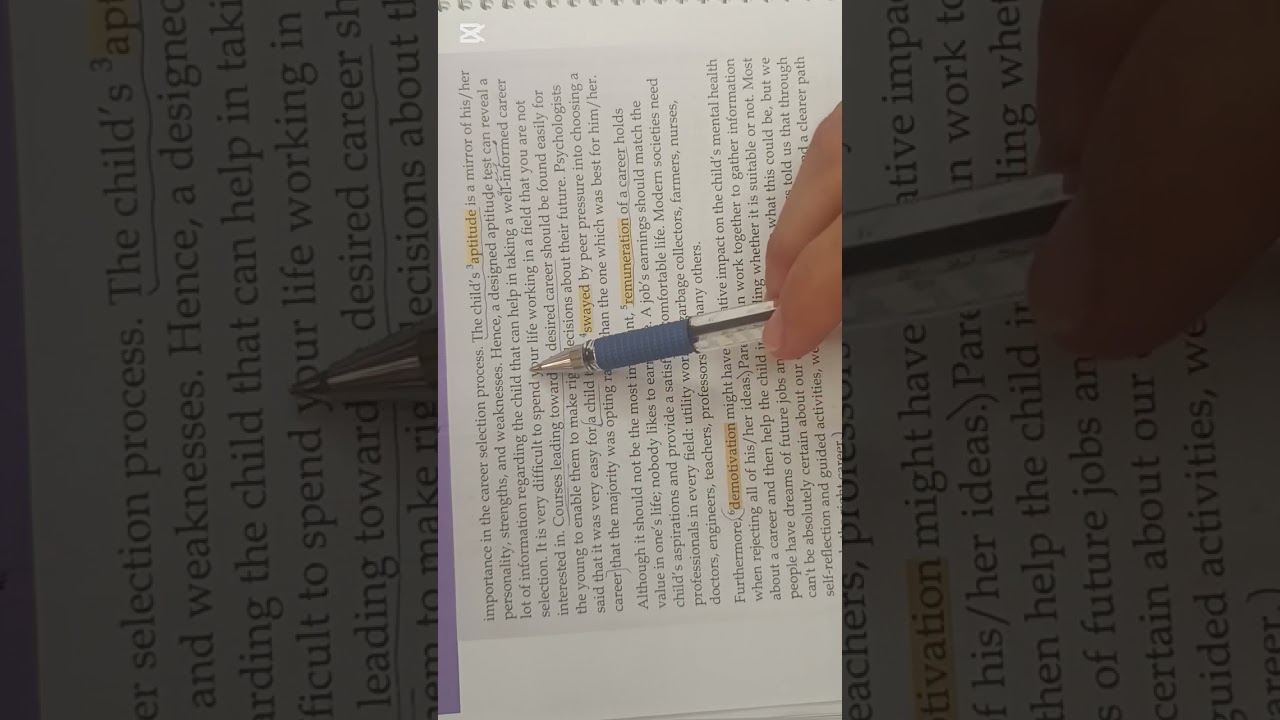 importance in the career selection process. The child's ³aptitude is a mirror of his/her
personality, strengths, and weaknesses. Hence, a designed aptitude test can reveal a
lot of information regarding the child that can help in taking a well-informed career
selection. It is very difficult to spend your life working in a field that you are not
interested in. Courses leading toward desired career should be found easily for
the young to enable them to make decisions about their future. Psychologists
said that it was very easy for a child ⁴swayed by peer pressure into choosing a
career that the majority was opting than the one which was best for him/her.
Although it should not be the most ⁵remuneration of a career holds
value in one's life; nobody likes to A job's earnings should match the
child's aspirations and provide a comfortable life. Modern societies need
professionals in every field: utility garbage collectors, farmers, nurses,
doctors, engineers, teachers, professors many others.
Furthermore, ⁶demotivation might have impact on the child's mental health
when rejecting all of his/her ideas. work together to gather information
about a career and then help the child whether it is suitable or not. Most
people have dreams of future jobs what this could be, but we
can't be absolutely certain about our told us that through
self-reflection and guided activities, a clearer path